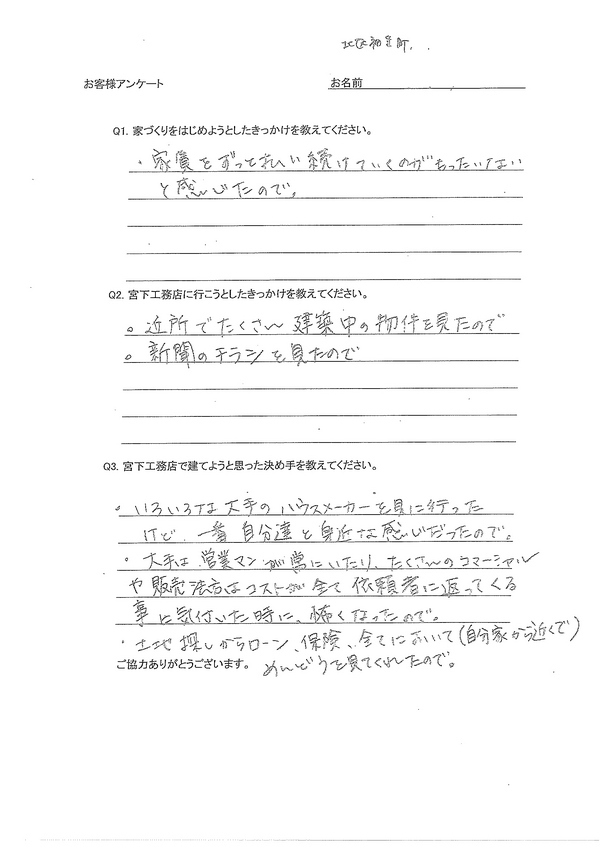 北区初生町.
お客様アンケート
お名前
Q1. 家づくりをはじめようとしたきっかけを教えてください。
・家賃をずっと払い続けていくのがもったいない
と感じたので。
Q2. 宮下工務店に行こうとしたきっかけを教えてください。
。近所でたくさん建築中の物件を見たので
。新聞のチラシを見たので
Q3. 宮下工務店で建てようと思った決め手を教えてください。
・いろいろな大手のハウスメーカーを見に行った
けど、一番自分達と身近な感じだったので。
・大手は営業マンが常にいたり、たくさんのコマーシャル
や販売法方はコストが全て依頼者に返ってくる
事に気付いた時に、怖くなったので。
・土地探しからローン、保険、全てにおいて(自分家から近くで)
めんどうを見てくれたので。
ご協力ありがとうございます。